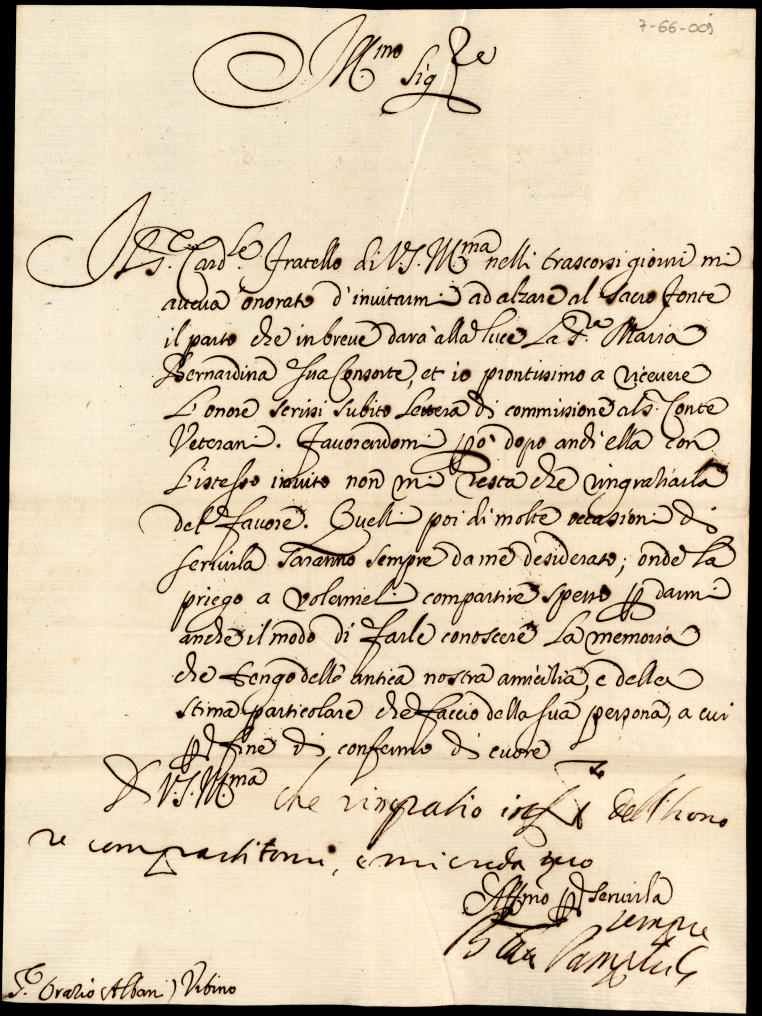 7-66-009
Ill.mo Sig.re
Il S.r Card.le fratello di V.S. Ill.ma nelli trascorsi giorni mi
aueua onorato d'inuitarmi ad alzare al sacro fonte
il parto che in breue darà alla luce La S.ra Maria
Bernardina sua Consorte, et io prontissimo a riceuere
L'onore scrissi subito Lettera di commissione al S. Conte
Veterani. Fauorendomi pò dopo anch'ella con
L'istesso inuito non mi resta che ringratiarla
del fauore. Quelli poi di molte occasioni di
seruirla saranno sempre da me desiderate; onde La
priego a volermeli compartire spesso p darmi
anche il modo di farle conoscere La memoria
che tengo dell' antica nostra amicitia, e della
stima particolare che faccio della sua persona, a cui
p fine di confermo di cuore
D V.S. Ill.ma che ringratio dell'hono
re compartitomi, e mi creda pero
Aff.mo p seruirla
sempre
S. Oratio Albani) Vrbino